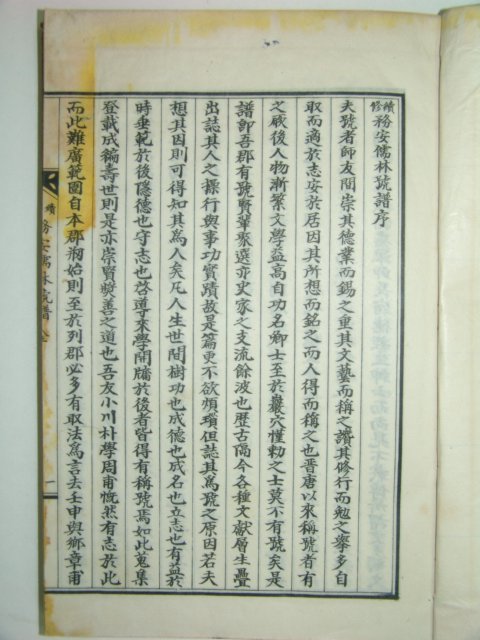 續修務安儒林號譜序
夫號者師友間崇其德業而錫之重其文藝而稱之讚其修行而勉之擧多自
取而適於志安於居因其所想而銘之而人得而稱之也晋唐以來稱號者有
之厥後人物漸繁文學益高自功名卿士至於巖穴慬勅之士莫不有號矣是
譜卽吾郡有號賢輩聚選亦史家之支流餘波也歷古隔今各種文獻層生疊
出誌其人之操行與事功實蹟故是篇更不欲煩瑣但誌其爲號之原因若夫
想其因則可得知其爲人矣凡人生世間樹功也成德也成名也立志也有益於
時垂範於後隱德也守志也啓導來學開牖於後者皆得有稱號焉如此蒐集
登載成編壽世則是亦崇賢奬善之道也吾友小川朴學周甫慨然有志於此
而此難廣範圍自本郡刱始則至於列郡必多有取法爲言去壬申與鄕章甫
續務安儒林號譜全
一